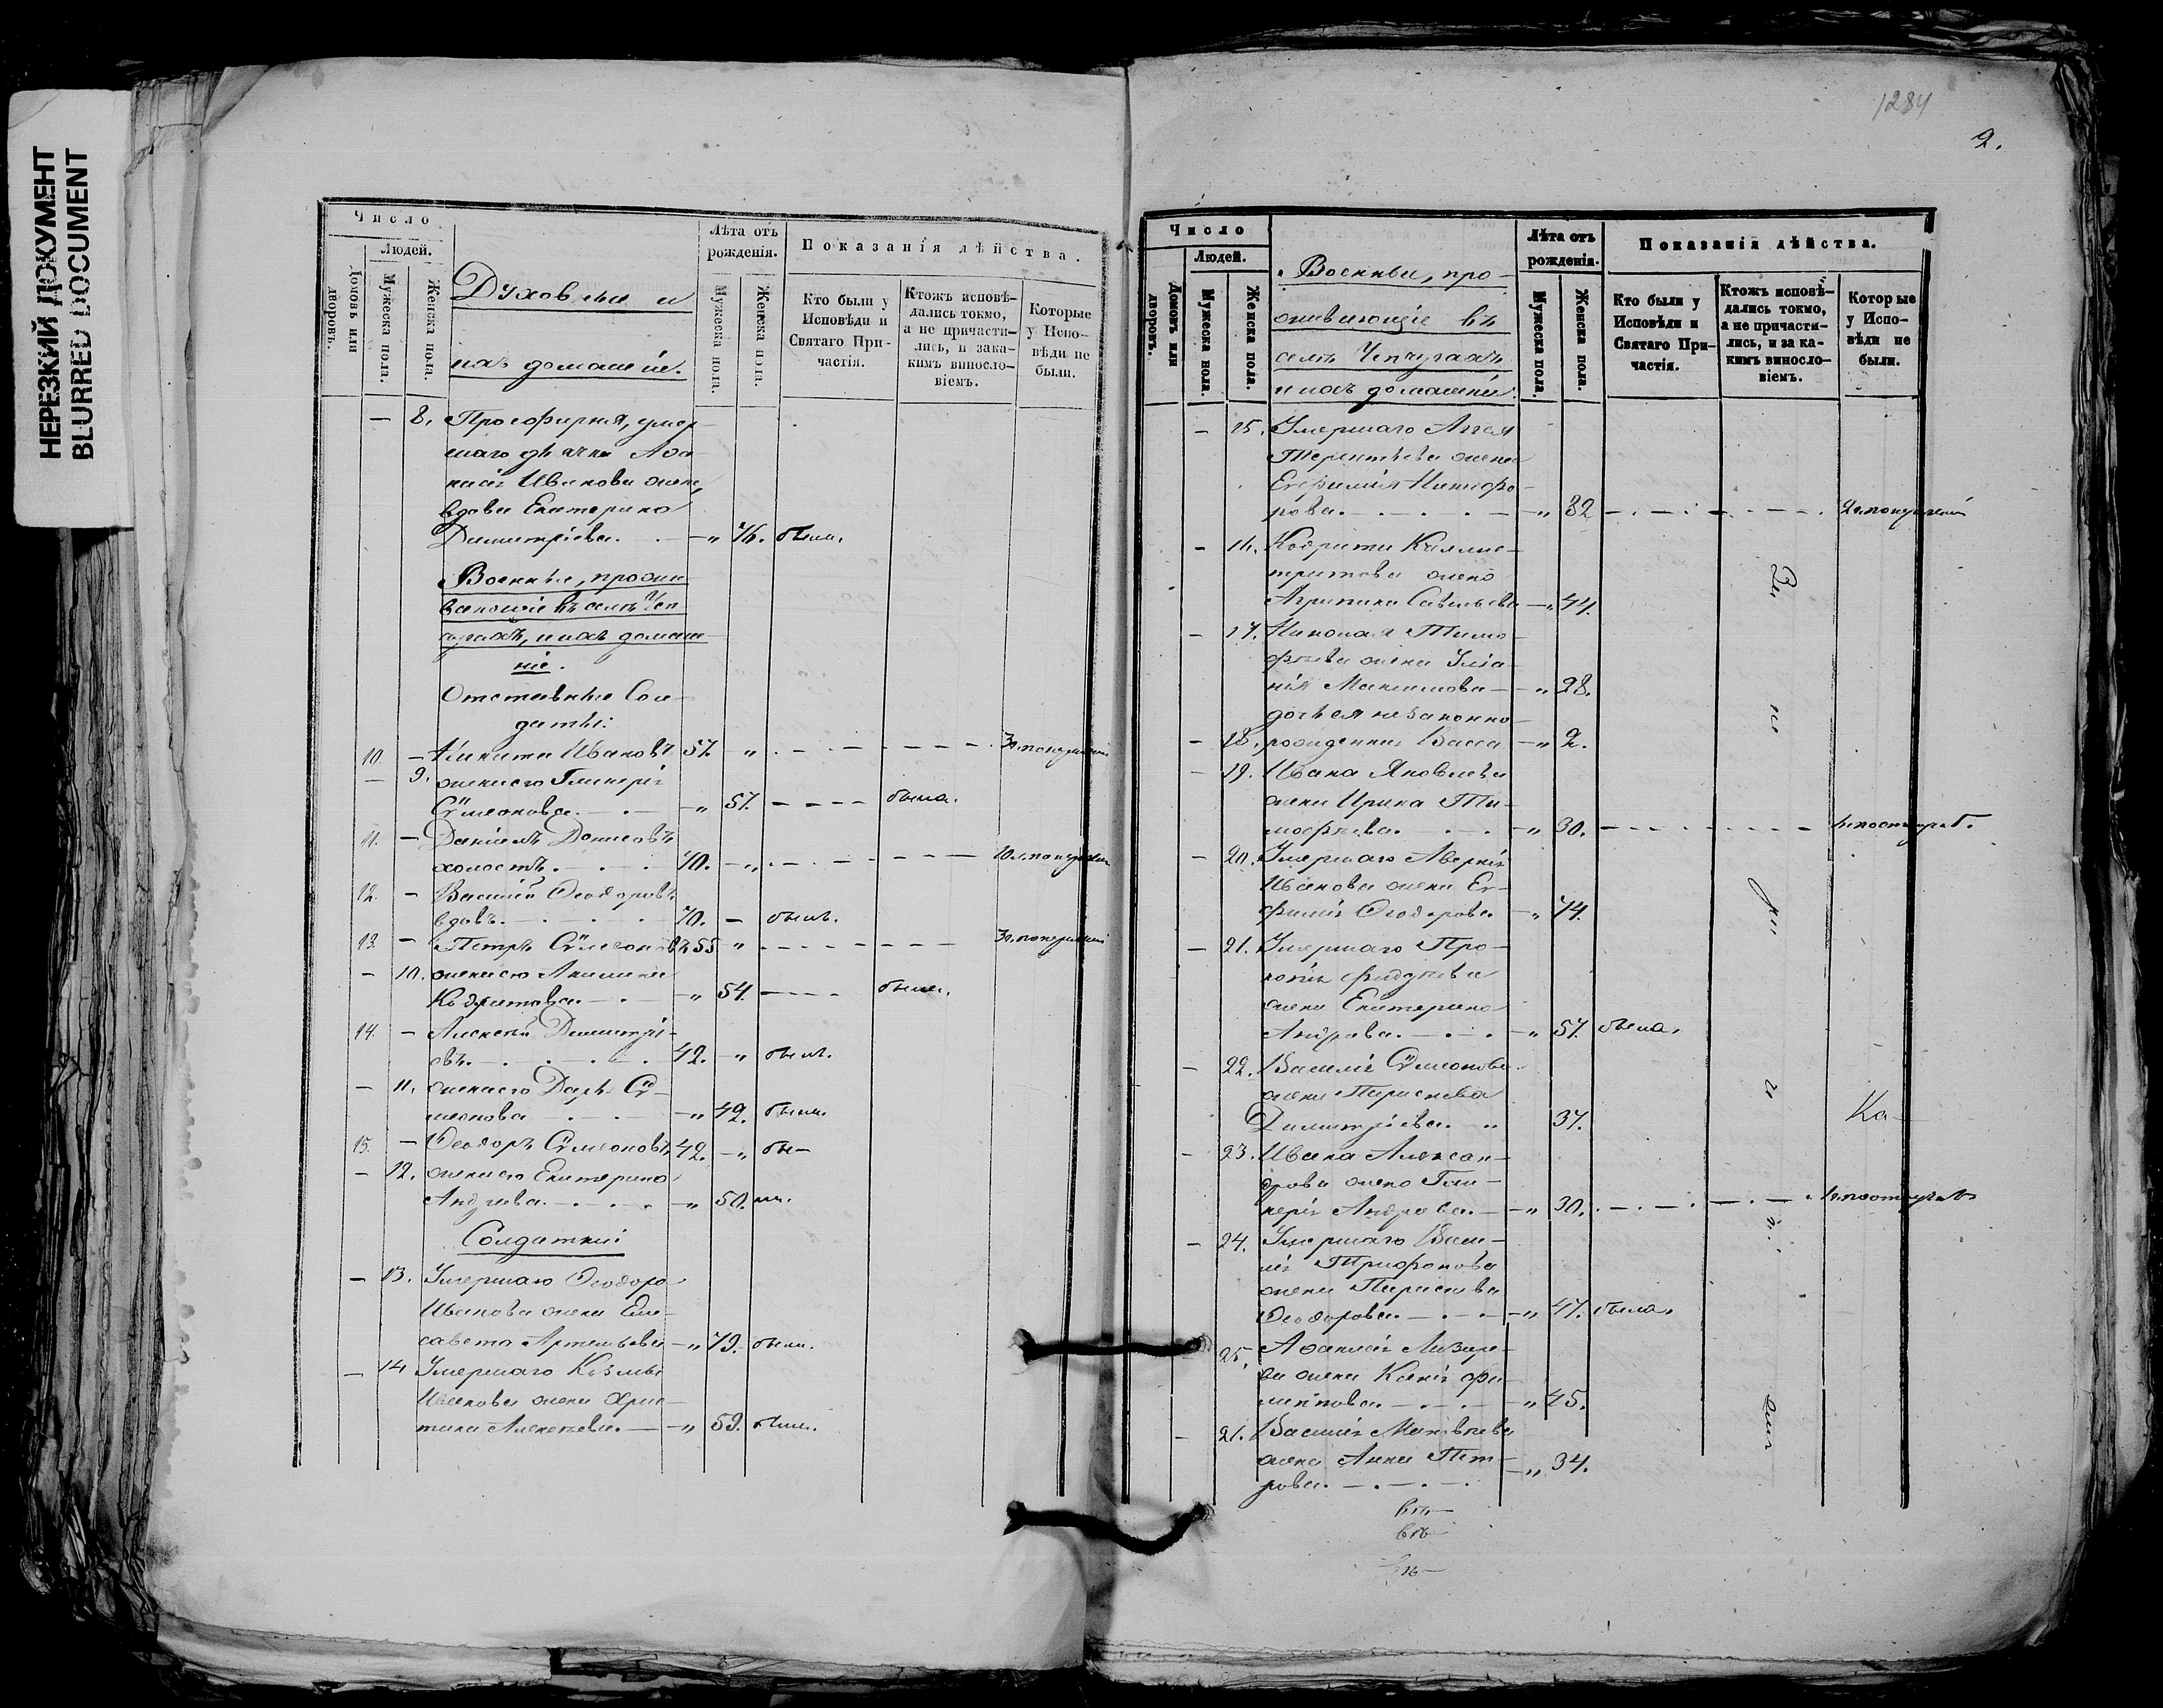 НЕРЕЗКИЙ ДОКУМЕНТ
BLURRED DOCUMENT
Число
Людей.
Домовъ или дворовъ.
Мужеска пола.
Женска пола.
Духовные и
ихъ домашніе.
Лѣта отъ рожденія.
Мужеска пола.
Женска пола.
Показанія дѣйства.
Кто были у Исповѣди и Святаго Причастія.
Ктожъ исповѣдались токмо, а не причастились, и за какимъ винословіемъ.
Которые у Исповѣди не были.
— 8. Просфирня, умер-
шаго дьячка
Иванова жена,
вдова Екатерина
Димитріева. — „ 76. была.
Военные, прожи
вающіе въ селѣ Чеп
чугахъ, и ихъ домаш-
ніе.
Отставные Сол-
даты:
10. — Никита Ивановъ 57. „
— 9. жена его Гликерія
Сѵмеонова. — „ 57. была.
11. — Даніилъ Денисовъ
холостъ. 70. — „
12. — Василій Ѳеодоровъ
вдовъ. 70. — былъ.
13. — Петръ Сѵмеоновъ 55 „
— 10. жена его Акилина
Кодратова. — „ 54. была.
14. — Алексѣй Димитрі-
евъ. 42. — „ былъ.
— 11. жена его Дарья Сѵ-
меонова — „ 42. была.
15. — Ѳеодоръ Сѵмеоновъ 42. — „ бы-
— 12. жена его Екатерина
Андреева. „ 50. ли.
Солдатки:
— 13. Умершаго Ѳеодора
Иванова жена Ели-
савета Артемьева — „ 79. была.
— 14 Умершаго Козьмы
Иванова жена Хрис-
тина Алексѣева. — „ 59. была.
1284
2.
Число
Людей.
Домовъ или дворовъ.
Мужеска пола.
Женска пола.
Военные, про-
живающіе въ
селѣ Чепчугахъ
и ихъ домашніе.
Лѣта отъ рожденія.
Мужеска пола.
Женска пола.
Показанія дѣйства.
Кто были у Исповѣди и Святаго Причастія.
Ктожъ исповѣдались токмо, а не причастились, и за какимъ винословіемъ.
Которые у Исповѣди не были.
— 15. Умершаго Аггея
Терентьева жена
Евфимія Никифо-
рова. — „ 32
— 16. Кодрата Каллис-
тратова жена
Агрипина Савельева — „ 44.
— 17. Николая Тимо-
фѣева жена Уліа-
нія Максимова — „ 28.
дочь ея незаконно-
— 18. рожденная Васса — „ 2.
— 19. Ивана Яковлева
жена Ирина Ти-
моѳеева. — „ 30.
— 20. Умершаго Аверкія
Иванова жена Ев-
фимія Ѳеодорова. — „ 74.
— 21. Умершаго Про-
копія Фаддѣева
жена Екатерина
Андреева. — „ 57. была.
— 22. Василія Сѵмеонова
жена Параскева
Димитріева. „ 37.
— 23. Ивана Алексан-
дрова жена Гли-
керія Андреева. — „ 30.
— 24. Умершаго Васи-
лія Трифонова
жена Параскева
Ѳеодорова. — „ 47. была.
25. Аѳанасія Лазаре-
ва жена Ксенія Фи-
липпова. — „ 45.
— 21. Василія Матвѣева
жена Анна Пет-
рова. — „ 34.
Ка